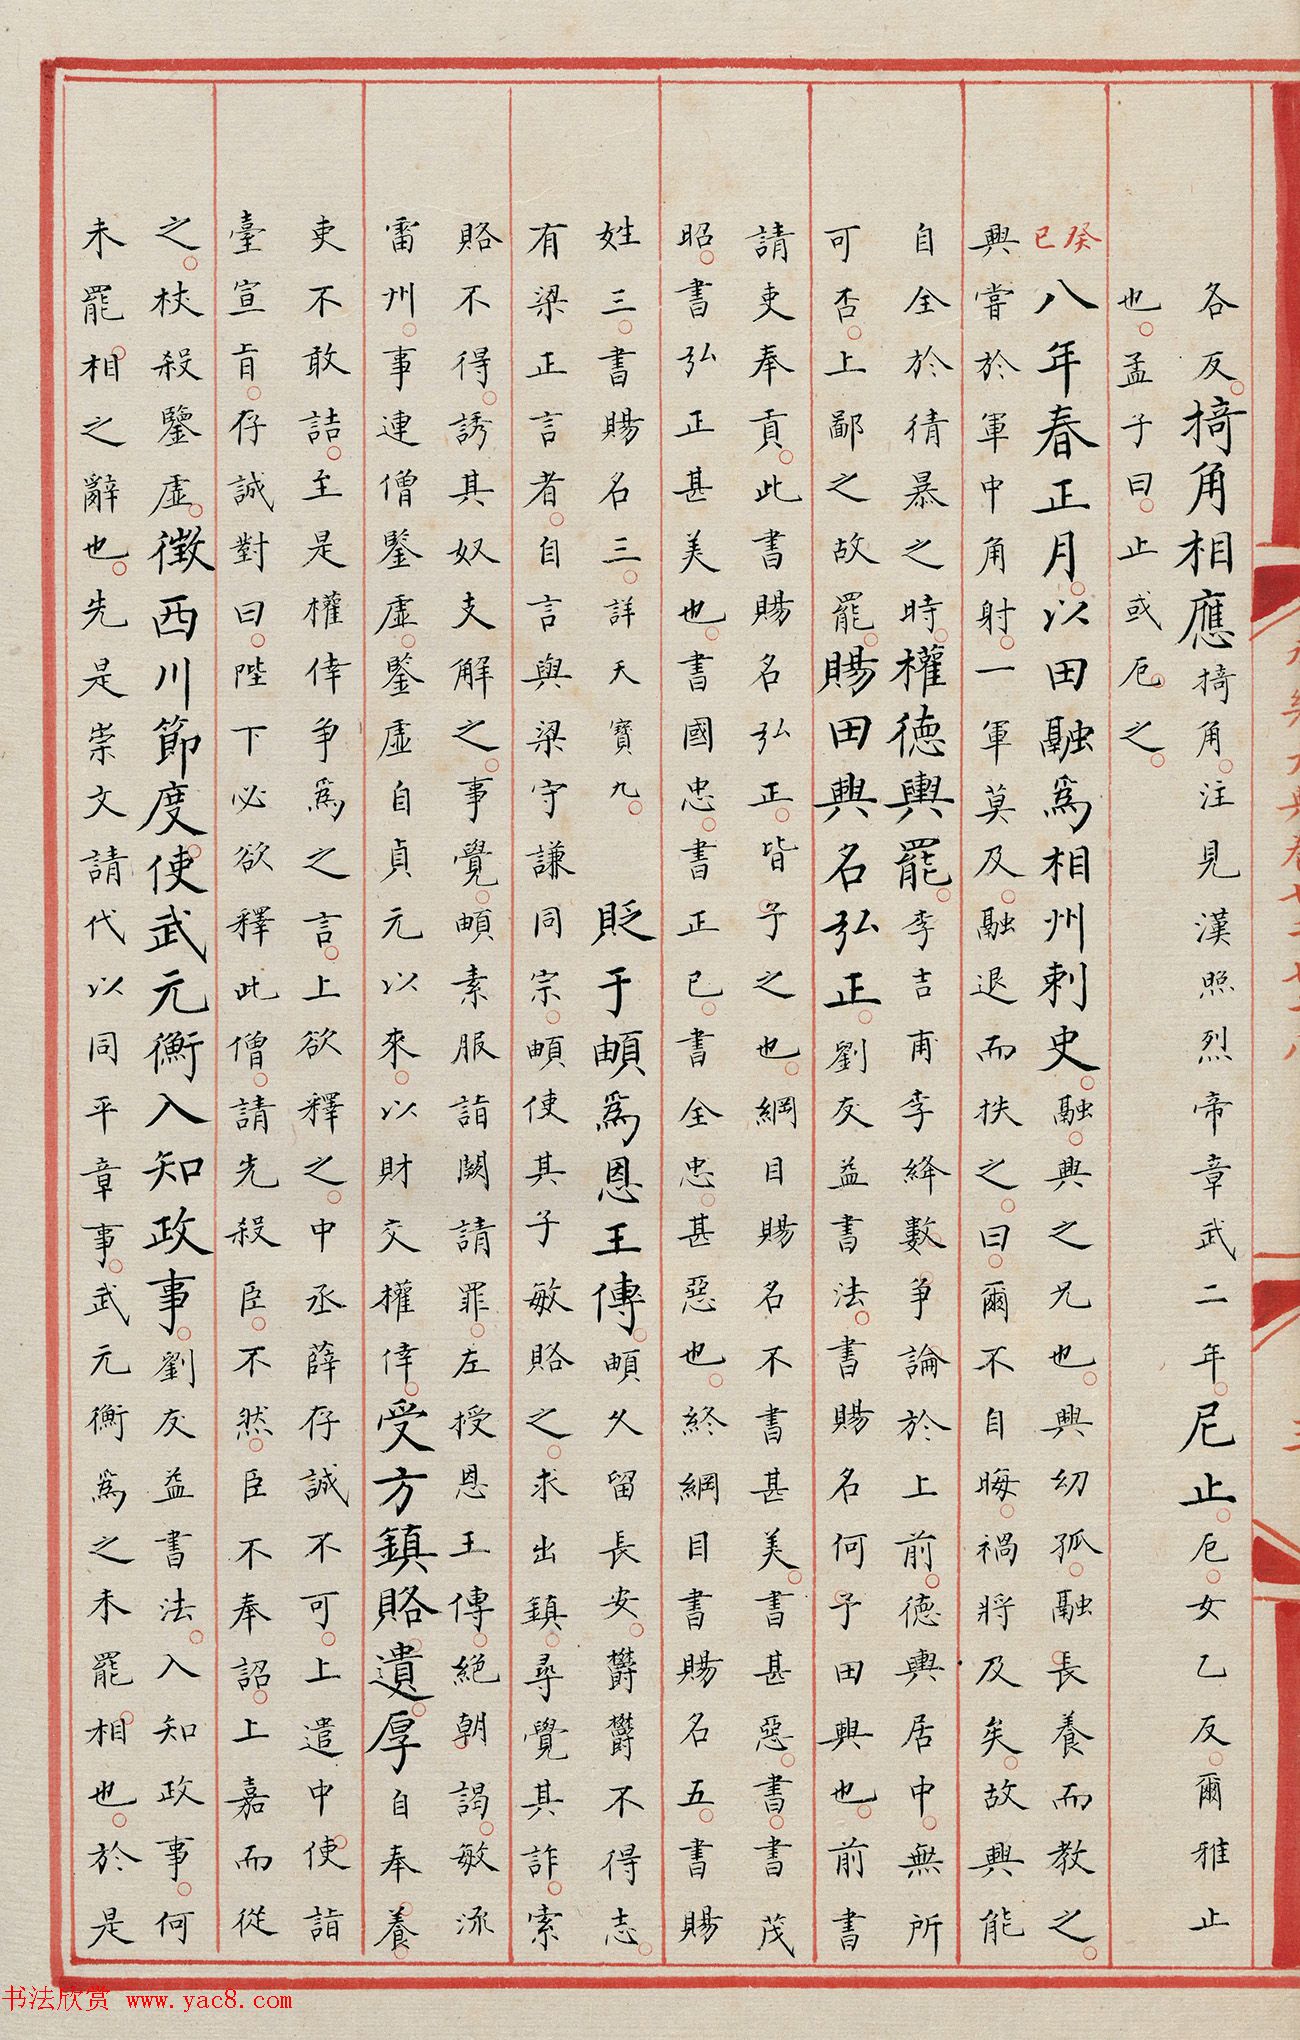 各反。掎角相應掎角。注見漢照烈帝章武二年。尼止。厄。女乙反。爾雅止
也。孟子曰。止或厄。之。
癸巳八年春正月。以田融爲相州刺史。融。興之兄也。興幼孤。融長養而教之。
興嘗於軍中角射。一軍莫及。融退而抶之。曰。爾不自晦。禍將及矣。故興能
自全於猜暴之時。權德輿罷。李吉甫李絳數爭論於上前。德輿居中。無所
可否。上鄙之故罷。賜田興名弘正。劉友益書法。書賜名何予田興也。前書
請吏奉貢。此書賜名弘正。皆予之也。綱目賜名不書甚美。書甚惡。書。書茂
昭。書弘正甚美也。書國忠。書正已。書全忠。甚惡也。終綱目書賜名五。書賜
姓三。書賜名三。詳天寶九。貶于頔爲恩王傅。頔久留長安。鬱鬱不得志。
有梁正言者。自言與梁守謙同宗。頔使其子敏賂之。求出鎮。尋覺其詐。索
賂不得。誘其奴支解之。事覺。頔素服詣闕請罪。左授恩王傅。絕朝謁。敏流
雷州。事連僧鑒虛。鑒虛自貞元以來。以財交權倖。受方鎮賂遺。厚自奉養。
吏不敢詰。至是權倖爭爲之言。上欲釋之。中丞薛存誠不可。上遣中使詣
臺宣旨。存誠對曰。陛下必欲釋此僧。請先殺臣。不然。臣不奉詔。上嘉而從
之。杖殺鑒虛。徵西川節度使武元衡入知政事。劉友益書法。入知政事。何
未罷相之辭也。先是崇文請代以同平章事。武元衡爲之未罷相也。於是
书法欣赏 www.yac8.com